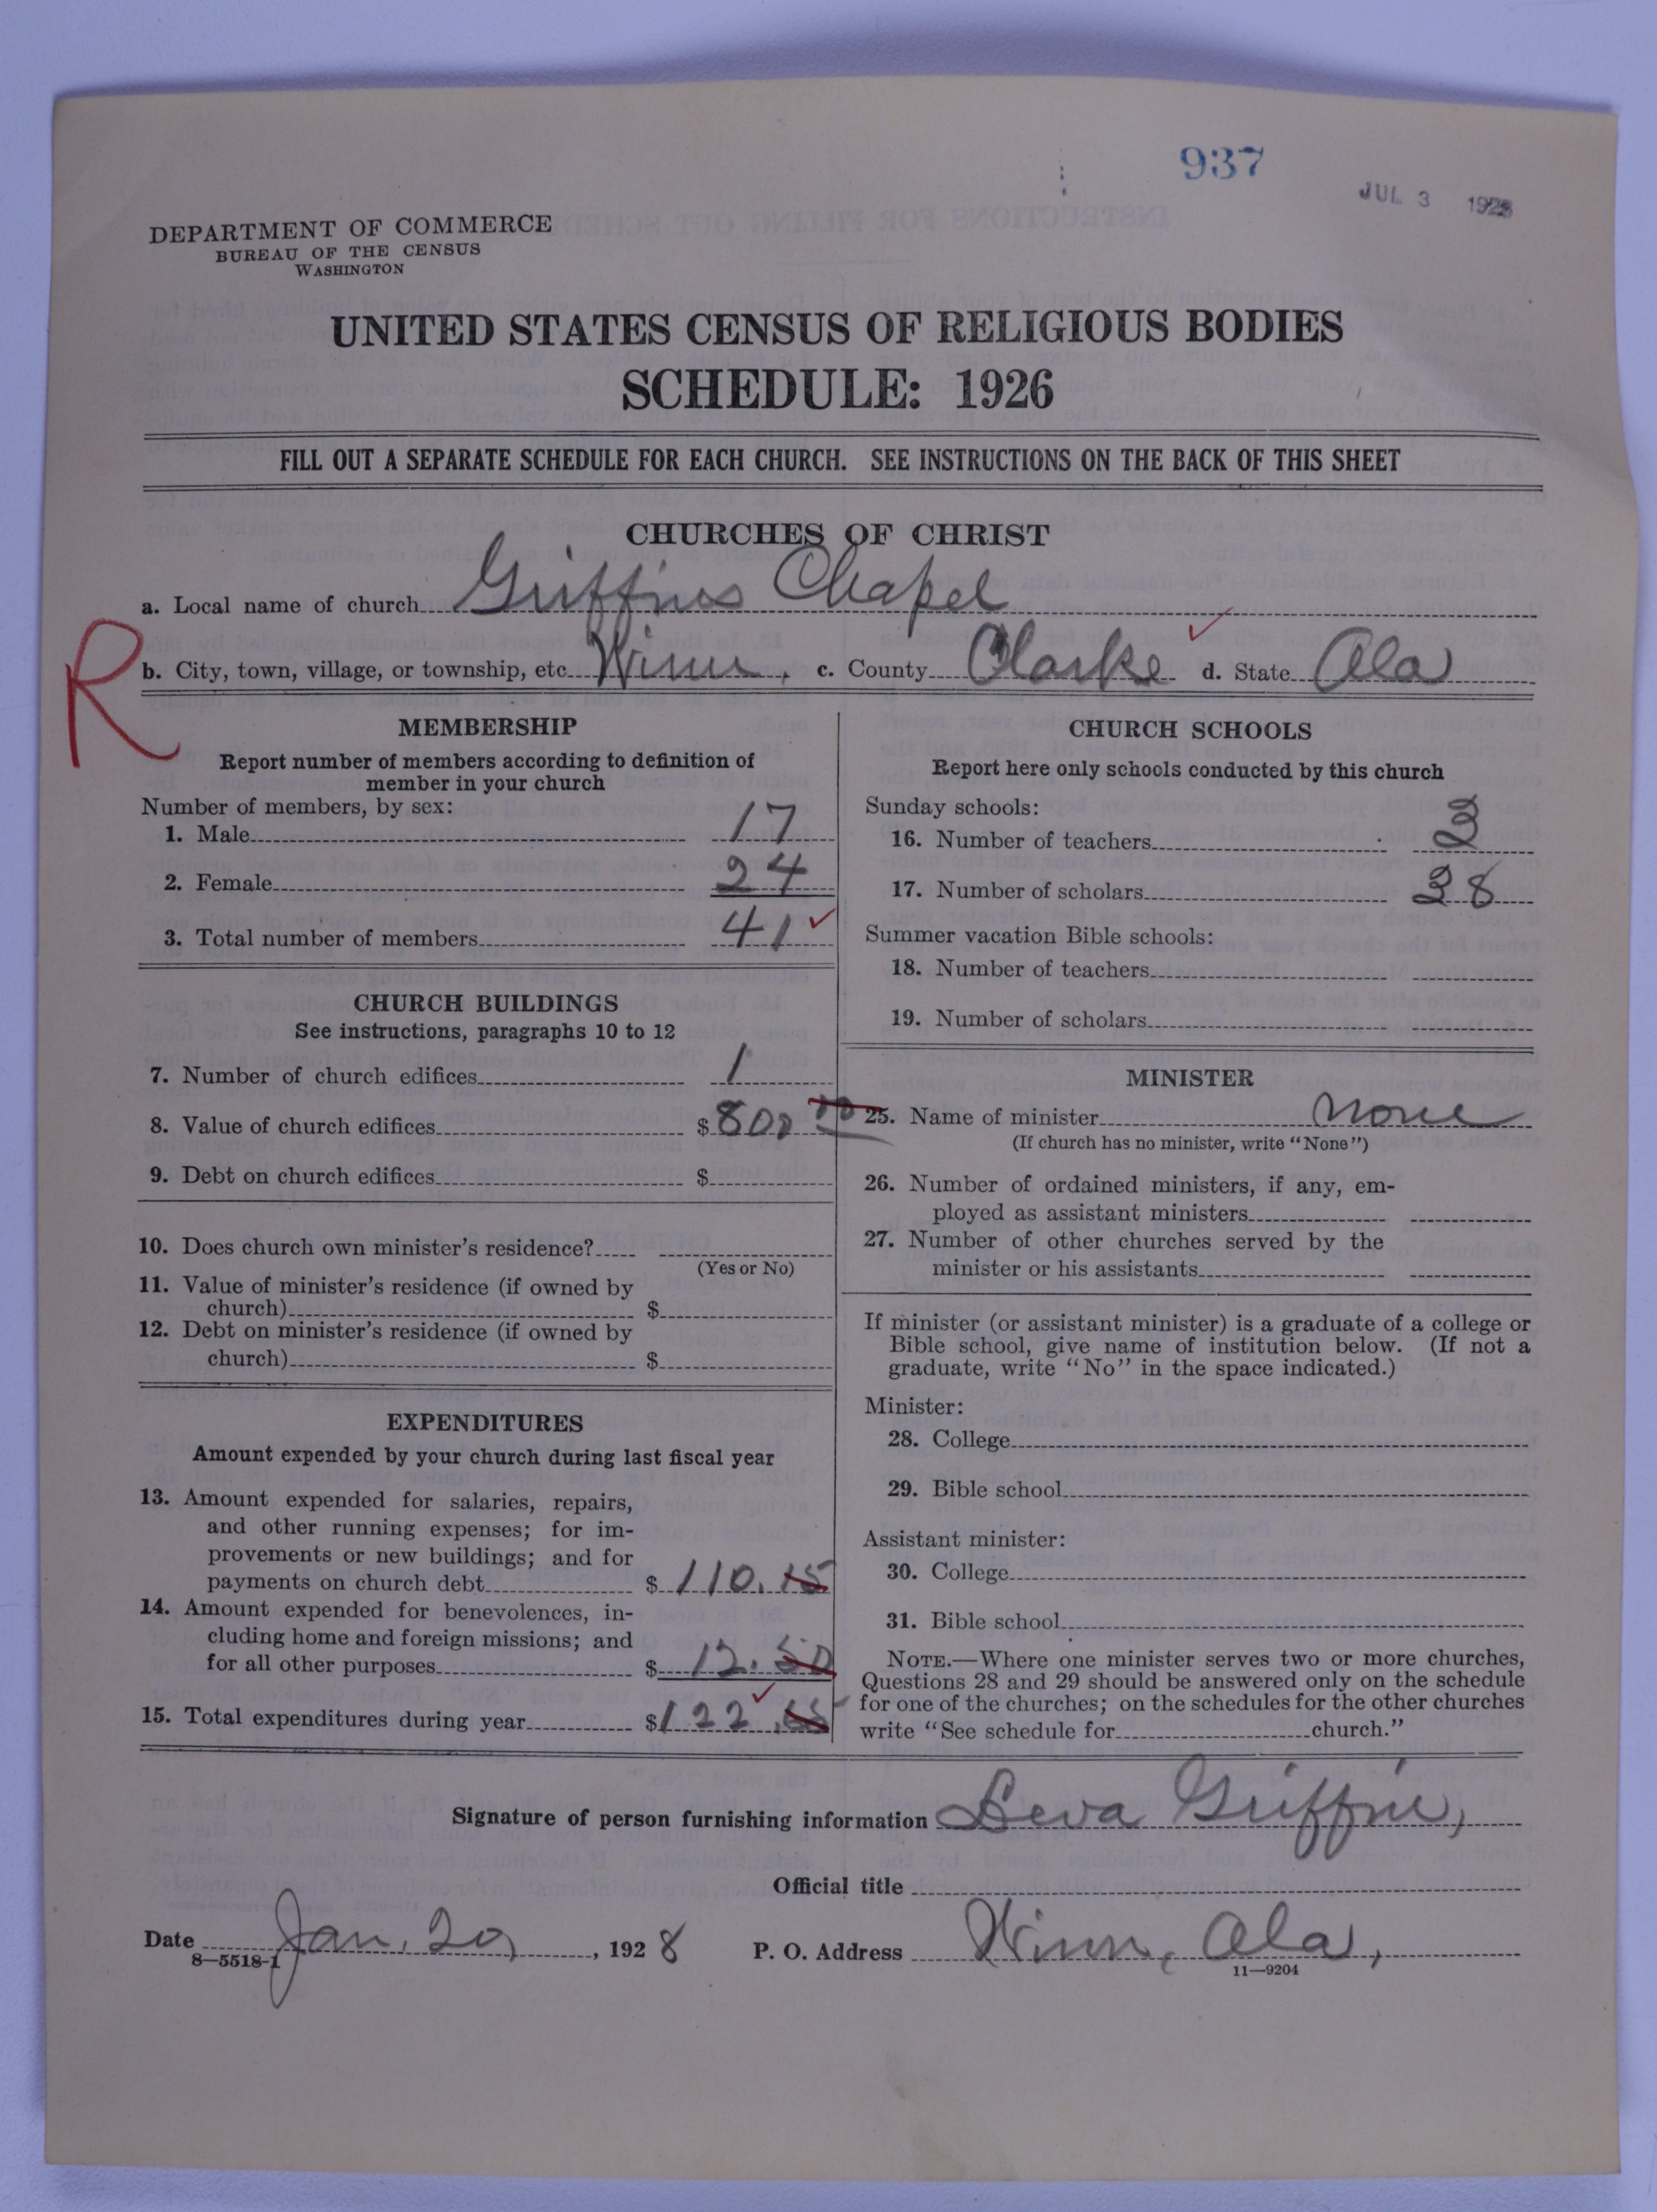 937
JUL 3 1928
DEPARTMENT OF COMMERCE
BUREAU OF THE CENSUS
WASHINGTON
UNITED STATES CENSUS OF RELIGIOUS BODIES
SCHEDULE: 1926
FILL OUT A SEPARATE SCHEDULE FOR EACH CHURCH. SEE INSTRUCTIONS ON THE BACK OF THIS SHEET
CHURCHES OF CHRIST
a. Local name of church Griffins Chapel
R
b. City, town, village, or township, etc. Winn, c. County Clarke d. State Ala
MEMBERSHIP
Report number of members according to definition of
member in your church
Number of members, by sex:
1. Male 17
2. Female 24
3. Total number of members 41
CHURCH BUILDINGS
See instructions, paragraphs 10 to 12
7. Number of church edifices 1
8. Value of church edifices $800
9. Debt on church edifices $
10. Does church own minister's residence?
(Yes or No)
11. Value of minister's residence (if owned by
church) $
12. Debt on minister's residence (if owned by
church) $
EXPENDITURES
Amount expended by your church during last fiscal year
13. Amount expended for salaries, repairs,
and other running expenses; for im-
provements or new buildings; and for
payments on church debt $ 110.15
14. Amount expended for benevolences, in-
cluding home and foreign missions; and
for all other purposes $ 12.50
15. Total expenditures during year $122.65
CHURCH SCHOOLS
Report here only schools conducted by this church
Sunday schools:
16. Number of teachers 3
17. Number of scholars 38
Summer vacation Bible schools:
18. Number of teachers
19. Number of scholars
MINISTER
25. Name of minister none
(If church has no minister, write "None")
26. Number of ordained ministers, if any, em-
ployed as assistant ministers
27. Number of other churches served by the
minister or his assistants
If minister (or assistant minister) is a graduate of a college or
Bible school, give name of institution below. (If not a
graduate, write "No" in the space indicated.)
Minister:
28. College
29. Bible school
Assistant minister:
30. College
31. Bible school
NOTE.—Where one minister serves two or more churches,
Questions 28 and 29 should be answered only on the schedule
for one of the churches; on the schedules for the other churches
write "See schedule for church."
Signature of person furnishing information Leva Griffin,
Official title
Date Jan. 20, 1928 P. O. Address Winn, Ala,
8—5518-1
11—9204